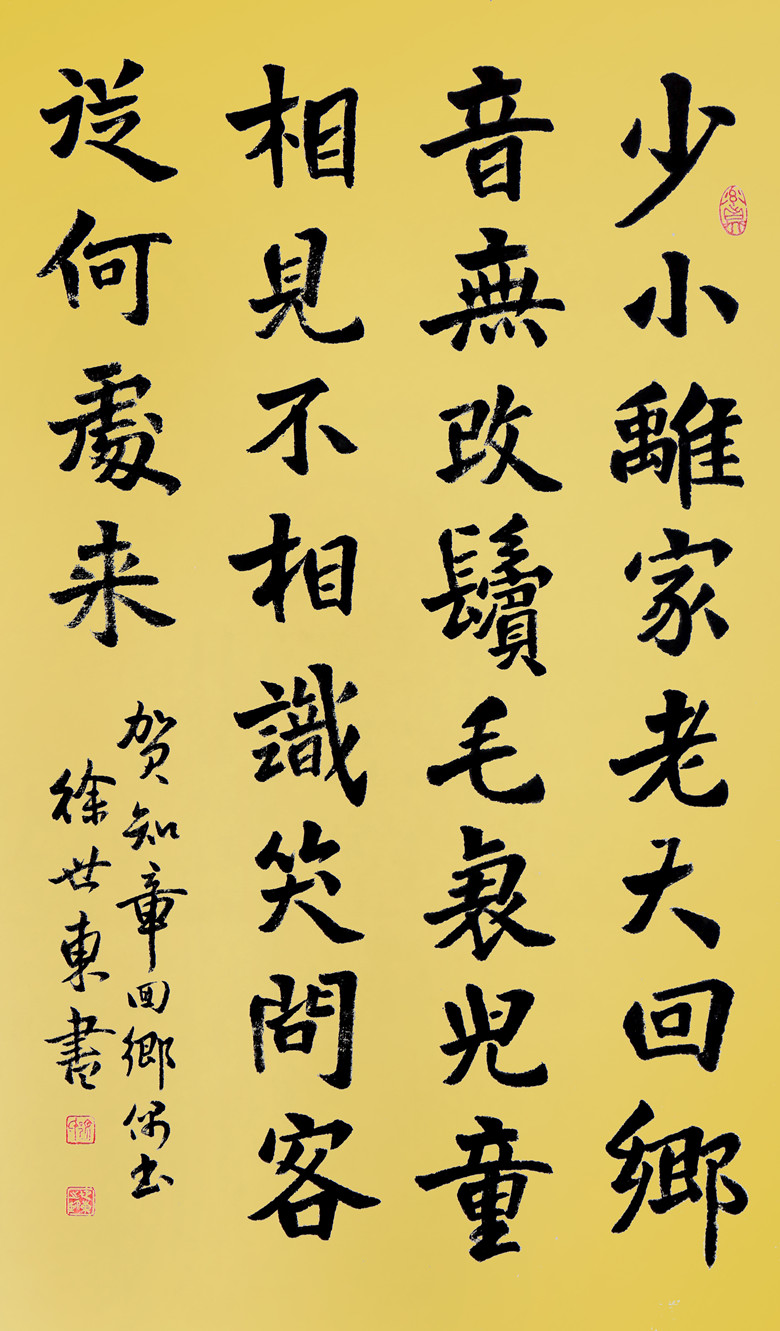 少小離家老大回鄉
音無改鬢毛衰兒童
相見不相識笑問客
從何處来
贺知章回鄉偶书
徐世東書